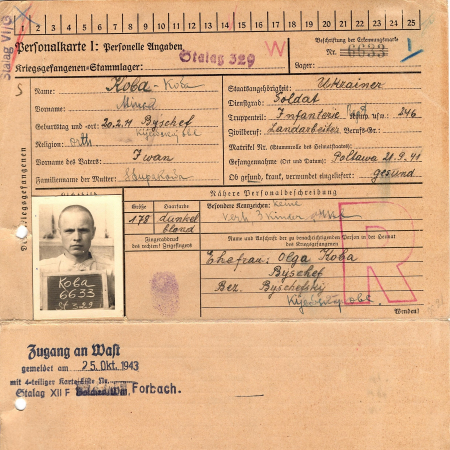 1 2 3 4 5 6 7 8 9 10 11 12 13 14 15 16 17 18 19 20 21 22 23 24 25
Personalkarte I: Personelle Angaben
Beschriftung der Erkennungsmarke
Kriegsgefangenen-Stammlager: Stalag 329 W
Nr. 6633
Lager:
Stalag VI/G
S
Name: Koba - Koba
Staatsangehörigkeit: Ukrainer
Vorname:
Dienstgrad: Soldat
Geburtstag und -ort: 20.2.11 Byschef
Truppenteil: Infanterie 246
Religion: orth
Zivilberuf: Landarbeiter Berufs-Gr.:
Matrikel Nr. (Stammrolle des Heimatstaates):
Vorname des Vaters: Iwan
Gefangennahme (Ort und Datum): Poltawa 21.9.41
Familienname der Mutter:
Ob gesund, krank, verwundet eingeliefert: gesund
Nähere Personalbeschreibung
Größe Haarfarbe
Besondere Kennzeichen: keine
178 dunkelblond
verh. 3 Kinder
Fingerabdruck
des rechten Zeigefingers
Name und Anschrift der zu benachrichtigenden Person in der Heimat
des Kriegsgefangenen
Ehefrau: Olga Koba
Byschef
Bez. Byschefski
R
Wenden!
Koba
6633
St 329
Zugang an Wast
gemeldet am 25. Okt. 1943
mit 4-teiliger Kartei-Liste Nr.
Stalag XII F Forbach.